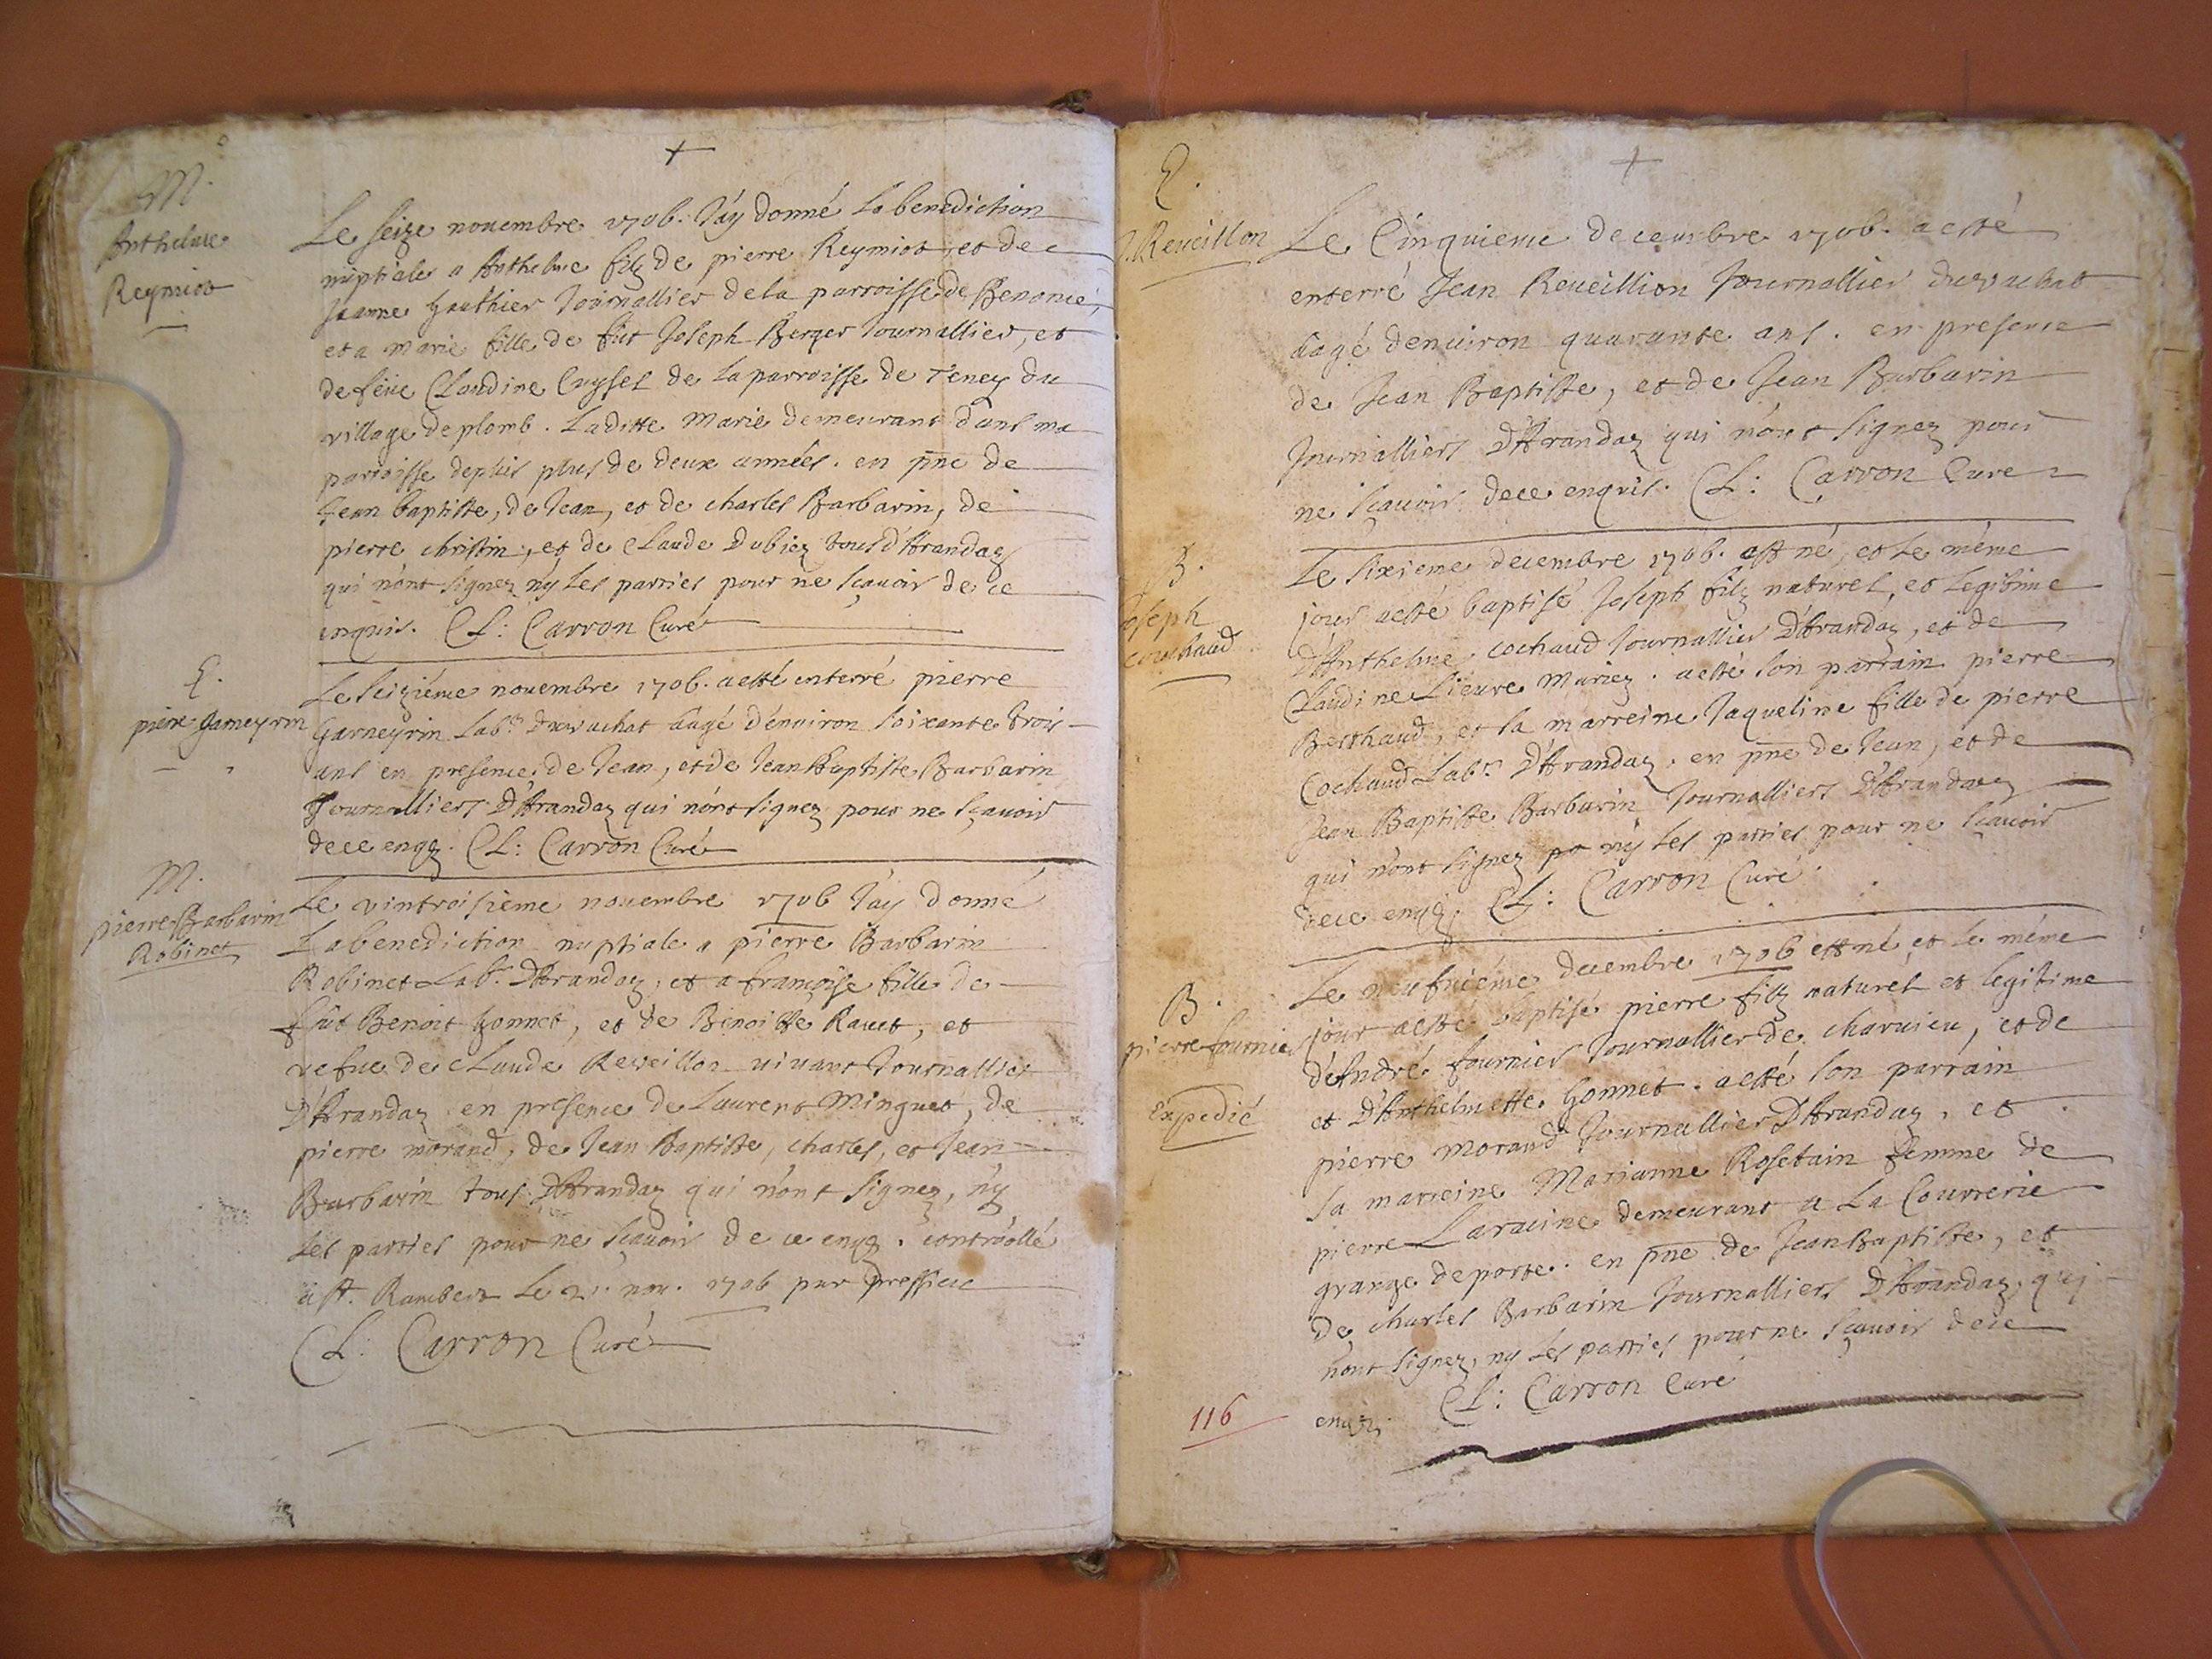 +
M.
Anthelme
Reymiot
Le seize novembre 1706. J'ay donné la benediction
nuptiale a Anthelme filz de pierre Reymiot, et de
Jeanne Gauthier Journallier de la parroisse de Benonce,
et a Marie fille de fut Joseph Berger Journallier, et
de feüe Claudine Cuysel de la parroisse de Teney du
village de plomb. Laditte Marie demeurant dans ma
parroisse depuis plus de deux années. en pñe de
Jean baptiste, de Jean, et de charles Barbarin, de
pierre christin, et de Claude Dubiez tous d'Arandaz
qui n'ont signez ny les parties pour ne sçavoir de ce
enquis. Cl: Carron Curé
E.
pierre Garneyrin
Le seiziéme novembre 1706. a esté enterré pierre
Garneyrin lab.r du vachat âagé d'environ soixante trois
ans en presence de Jean, et de Jean Baptiste Barbarin
Journalliers D'Arandaz qui n'ont signez pour ne sçavoir
de ce enqz. Cl: Carron Curé
M.
pierre Barbarin
Robinet
Le vintroisieme novembre 1706 J'ay donné
La benediction nuptiale a pierre Barbarin
Robinet Lab.r D'Arandaz, et a françoise fille de
fût Benoit Gonnet, et de Benoitte Ravet, et
vefue de Claude Reveillon vivant Journallier
D'Arandaz en presence de Laurent Minguet, de
pierre morand, de Jean Baptiste, charles, et Jean
Barbarin tous D'Arandaz qui n'ont signez, ny
les parties pour ne sçavoir de ce enqz. controllé
a st. Rambert le 21. nov. 1706 par
Cl: Carron Curé
+
E.
J. Reveillon
Le Cinquieme decembre 1706. a esté
enterré Jean Reveillion Journallier du vachat
âagé denviron quarante ans. en presence
de Jean Baptiste, et de Jean Barbarin
Journalliers D'Arandaz qui n'ont signez pour
ne sçavoir de ce enquis. Cl: Carron Curé
B.
Joseph
couchaud
Le sixieme decembre 1706. est né, et le même
jour a esté baptisé Joseph filz naturel, et legitime
d'Anthelme Cochaud Journallier D'Arandaz, et de
Claudine Lieure Mariez. a esté son parrain pierre
Berthaud, et la marreine Jaqueline fille de pierre
Cochaud Lab.r D'Arandaz. en pñe de Jean, et de
Jean Baptiste Barbarin Journalliers D'Arandaz
qui n'ont signez po ny les parties pour ne sçavoir
de ce enqz. Cl: Carron Curé
B.
pierre fournier
Expedié
Le neufvieme decembre 1706 est né, et le même
jour a esté baptisé pierre filz naturel et legitime
d'André fournier Journallier de charvieu, et de
et D'Anthelmette Gonnet. a esté son parrain
pierre Morand Journallier D'Arandaz, et
sa marreine Marianne Rosetain femme de
pierre Laracine demeurant a La Courrerie
grange de porte. en pñe de Jean Baptiste, et
de charles Barbarin Journalliers D'Arandaz, qui
n'ont signez, ny les parties pour ne sçavoir de ce
enqz. Cl: Carron Curé
116